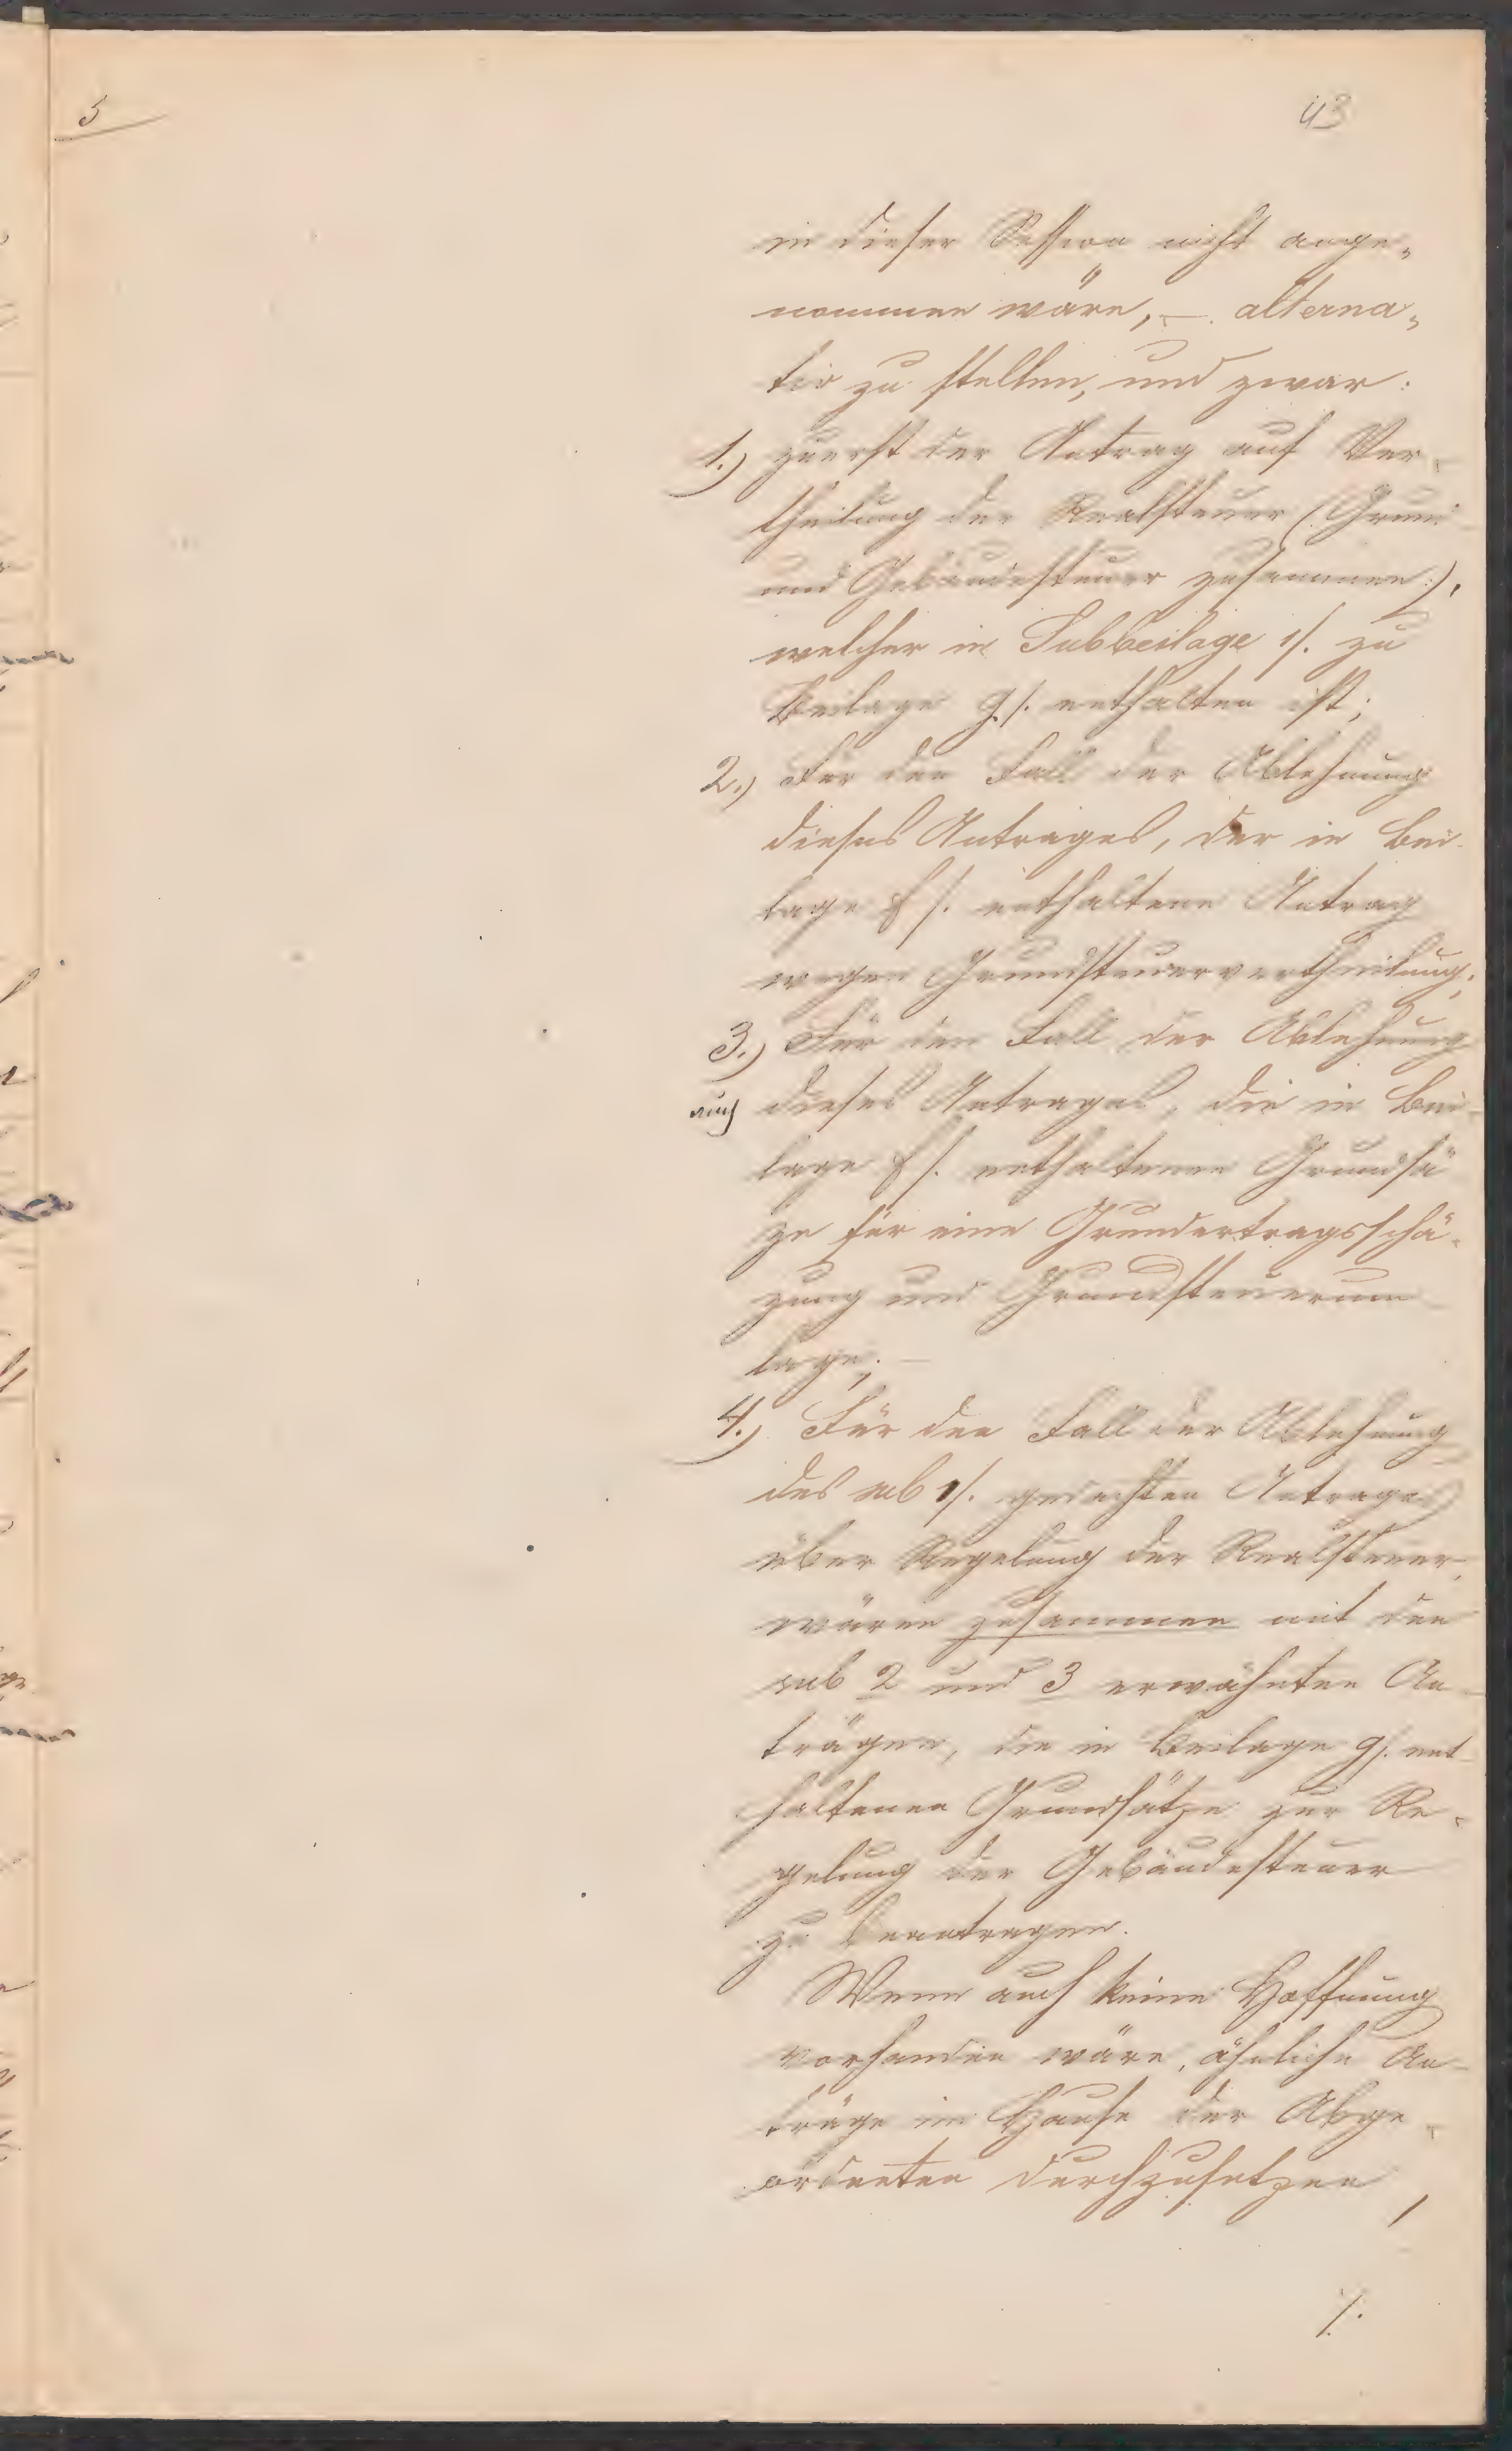 5
43
in dieser Session nicht ange„
nommen wäre, –. alterna„
tiv zu stellen, und zwar:
1.) zuerst der Antrag auf Ver-
theilung der Realsteuer (: Grund
und Gebäudesteuer zusammen :),
welcher in Subbeilage 1/. zu
Beilage g/. enthalten ist;
2.) Für den Fall der Ablehnung
dieses Antrages, der in Bei-
lage f/. enthaltene Antrag
wegen Grundsteuervertheilung;
3.) Für den Fall der Ablehnung
auch dieses Antrages, die in Bei-
lage f/. enthaltenen Grundsä
ze für eine Grundertragsschä-
zung und Grundsteuerum
lage; –
4.) Für den Fall der Ablehnung
des sub 1/. gedachten Antrages
über Regelung der Realsteuer,
wären zusammen mit den
sub 2 und 3 erwähnten An-
trägen, die in Beilage g/. ent
haltenen Grundsätze zur Re-
gelung der Gebäudesteuer
zu beantragen.
Wenn auch keine Hoffnung
vorhanden wäre, ähnliche An-
träge im Hause der Abge-
ordneten durchzusetzen,
/.